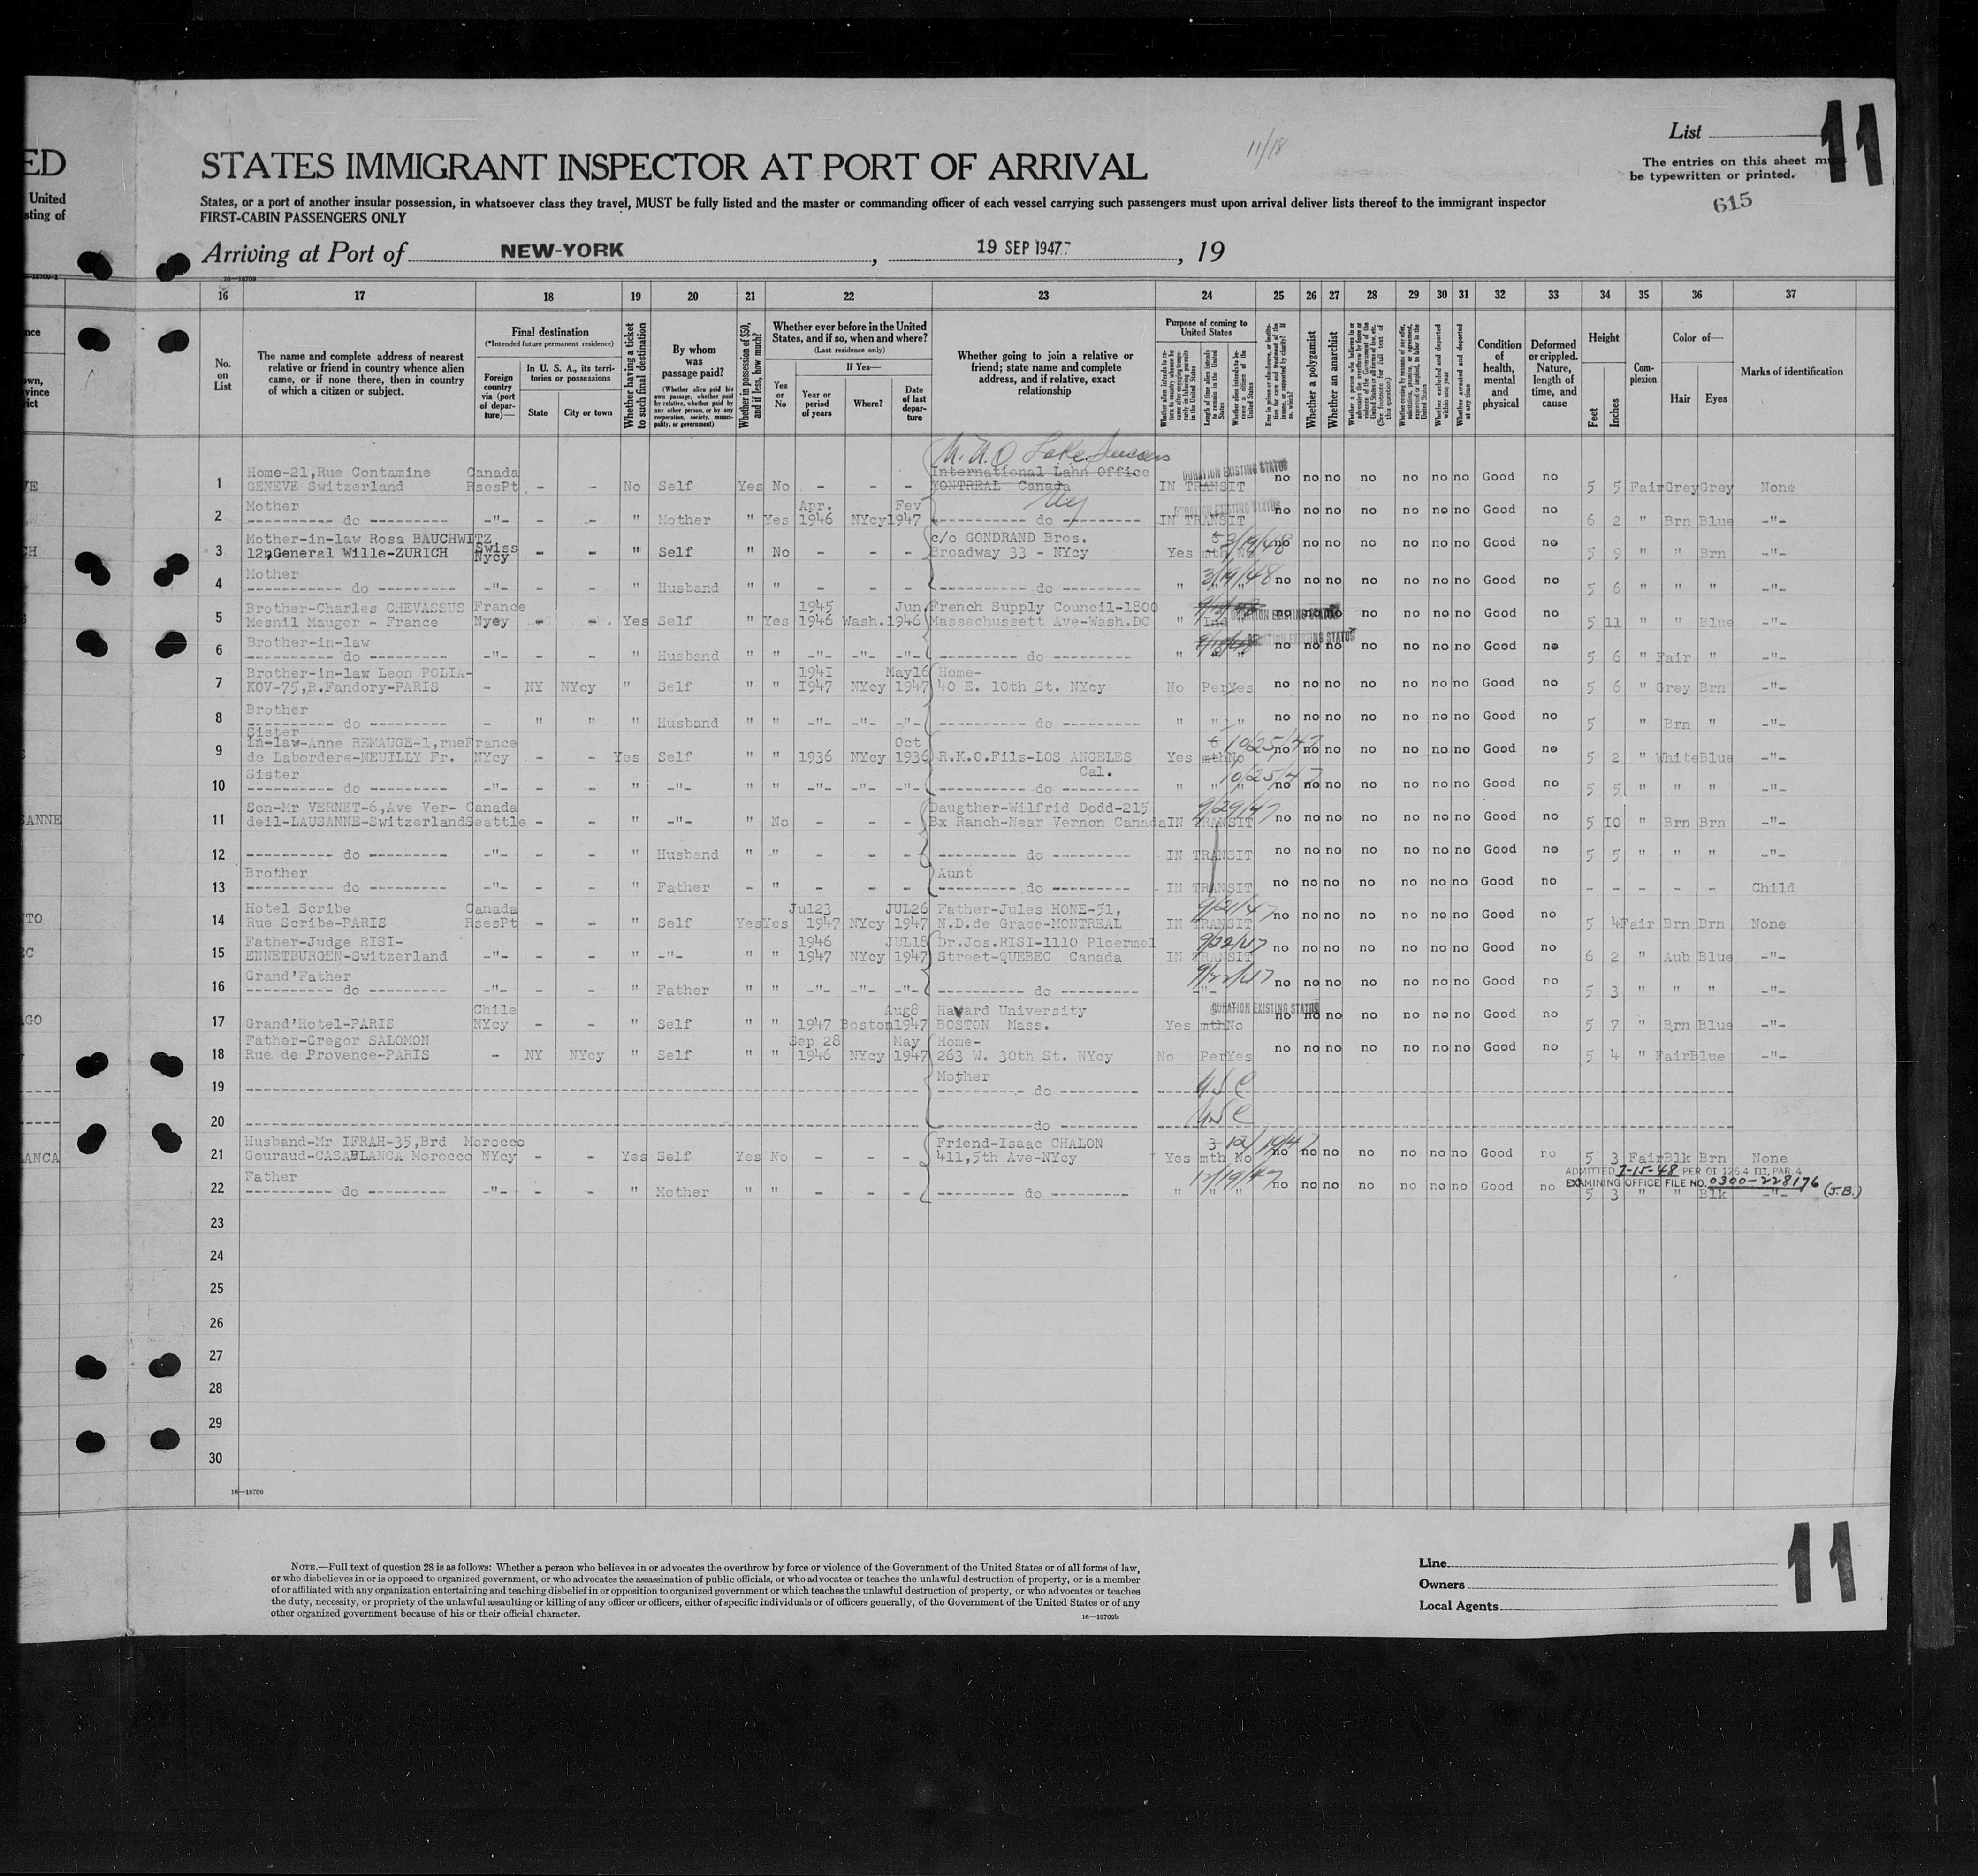 ED
United
sting of
STATES IMMIGRANT INSPECTOR AT PORT OF ARRIVAL
11/18
List
11
The entries on this sheet must
be typewritten or printed.
615
States, or a port of another insular possession, in whatsoever class they travel, MUST be fully listed and the master or commanding officer of each vessel carrying such passengers must upon arrival deliver lists thereof to the immigrant inspector
FIRST-CABIN PASSENGERS ONLY
Arriving at Port of NEW-YORK, 19 SEP 1947, 19
16—18709
16 17 18 19 20 21 22 23 24 25 26 27 28 29 30 31 32 33 34 35 36 37
No. on List
The name and complete address of nearest relative or friend in country whence alien came, or if none there, then in country of which a citizen or subject.
Final destination
(*Intended future permanent residence)
Foreign country via (port of departure)—
In U. S. A., its territories or possessions
State City or town
Whether having a ticket to such final destination
By whom was passage paid?
(Whether alien paid his own passage, whether paid by relative, whether paid by any other person, or by any corporation, society, municipality, or government)
Whether in possession of $50, and if less, how much?
Whether ever before in the United States, and if so, when and where?
(Last residence only)
Yes or No
If Yes—
Year or period of years
Where?
Date of last departure
Whether going to join a relative or friend; state name and complete address, and if relative, exact relationship
Purpose of coming to United States
Length of time alien intends to remain in the United States
Whether alien intends to become a citizen of the United States
Whether a polygamist
Whether an anarchist
Whether excluded and deported within one year
Whether arrested and deported at any time
Condition of health, mental and physical
Deformed or crippled. Nature, length of time, and cause
Height
Feet Inches
Complexion
Color of—
Hair Eyes
Marks of identification
International Lahn Office
1 Home-21,Rue Contamine Canada
GENEVE Switzerland RsesPt - - No Self Yes No - - - MONTREAL Canada IN TRANSIT DURATION EXISTING STATUS no no no no no no no Good no 5 5 Fair Grey Grey None
2 Mother Apr. Fev
do -"- - - " Mother " Yes 1946 NYcy 1947 do IN TRANSIT no no no no no no no Good no 6 2 " Brn Blue -"-
3 Mother-in-law Rosa BAUCHWITZ Swiss c/o GONDRAND Bros.
12,General Wille-ZURICH Nycy - - " Self " No - - - Broadway 33 - NYcy Yes mth No 3/19/48 no no no no no no no Good no 5 9 " " Brn -"-
4 Mother
do -"- - - " Husband " " - - - do " 3/19/48 no no no no no no no Good no 5 6 " " " -"-
5 Brother-Charles CHEVASSUS France 1945 Jun French Supply Council-1800
Mesnil Mauger - France Nycy Yes Self " Yes 1946 Wash. 1946 Massachussett Ave-Wash.DC " DURATION EXISTING STATUS no no no no no no no Good no 5 11 " " Blue -"-
6 Brother-in-law
do -"- - - " Husband " " -"- -"- -"- do " DURATION EXISTING STATUS no no no no no no no Good no 5 6 " Fair " -"-
7 Brother-in-law Leon POLIA- 1941 May16 Home-
KOV-75,R.Fandory-PARIS - NY NYcy " Self " " 1947 NYcy 1947 40 E. 10th St. NYcy No Per Yes no no no no no no no Good no 5 6 " Grey Brn -"-
8 Brother
do - " " " Husband " " -"- -"- -"- do " " " no no no no no no no Good no 5 " Brn " -"-
Sister
9 in-law-Anne REMAUGE-1,rue France Oct
de Labordere-NEUILLY Fr. NYcy - - Yes Self " " 1936 NYcy 1936 R.K.O.Fils-LOS ANGELES Yes 6 mth No 10/25/47 no no no no no no no Good no 5 2 " White Blue -"-
Cal.
10 Sister
do -"- - - " -"- " " -"- -"- -"- do " 10/25/47 no no no no no no no Good no 5 5 " " " -"-
11 Son-Mr VERNET-6,Ave Ver- Canada Daugther-Wilfrid Dodd-215
deil-LAUSANNE-Switzerland Seattle - - " -"- " No - - - Bx Ranch-Near Vernon Canada IN TRANSIT 9/29/47 no no no no no no no Good no 5 10 " Brn Brn -"-
12 do -"- - - " Husband " " - - - do IN TRANSIT no no no no no no no Good no 5 5 " " " -"-
13 Brother Aunt
do -"- - - " Father - " - - - do - IN TRANSIT no no no no no no no Good no - - - - - Child
14 Hotel Scribe Canada Jul23 JUL26 Father-Jules HONE-51,
Rue Scribe-PARIS RsesPt - - " Self Yes Yes 1947 NYcy 1947 N.D.de Grace-MONTREAL IN TRANSIT 9/21/47 no no no no no no no Good no 5 4 Fair Brn Brn None
15 Father-Judge RISI- 1946 JUL18 Dr.Jos.RISI-1110 Ploermel
ENNETBURGEN-Switzerland -"- - - " -"- " " 1947 NYcy 1947 Street-QUEBEC Canada IN TRANSIT 9/22/47 no no no no no no no Good no 6 2 " Aub Blue -"-
16 Grand'Father
do -"- - - " Father " " -"- -"- -"- do -"- 9/22/47 no no no no no no no Good no 5 3 " " " -"-
17 Chile Aug8 Havard University DURATION EXISTING STATUS
Grand'Hotel-PARIS NYcy - - " Self " " 1947 Boston 1947 BOSTON Mass. Yes mth No no no no no no no no Good no 5 7 " Brn Blue -"-
18 Father-Gregor SALOMON Sep 28 May Home-
Rue de Provence-PARIS - NY NYcy " Self " " 1946 NYcy 1947 263 W. 30th St. NYcy No Per Yes no no no no no no no Good no 5 4 " Fair Blue -"-
19 Mother
do USC
20 do USC
21 Husband-Mr IFRAH-35,Brd Morocco Friend-Isaac CHALON
Gouraud-CASABLANCA Morocco NYcy - - Yes Self Yes No - - - 411,5th Ave-NYcy Yes 3 mth No 12/19/47 no no no no no no no Good no 5 3 Fair Blk Brn None
ADMITTED 7-15-48 PER OI 126.4 III, PAR. 4
EXAMINING OFFICE FILE NO. 0300-228176 (J.B.)
22 Father
do -"- - - " Mother " " - - - do " " " 12/19/47 no no no no no no no Good no 5 3 " " Blk -"-
23
24
25
26
27
28
29
30
16—18709
NOTE.—Full text of question 28 is as follows: Whether a person who believes in or advocates the overthrow by force or violence of the Government of the United States or of all forms of law,
or who disbelieves in or is opposed to organized government, or who advocates the assassination of public officials, or who advocates or teaches the unlawful destruction of property, or is a member
of or affiliated with any organization entertaining and teaching disbelief in or opposition to organized government or which teaches the unlawful destruction of property, or who advocates or teaches
the duty, necessity, or propriety of the unlawful assaulting or killing of any officer or officers, either of specific individuals or of officers generally, of the Government of the United States or of any
other organized government because of his or their official character.
16—18709b
Line
Owners
Local Agents
11